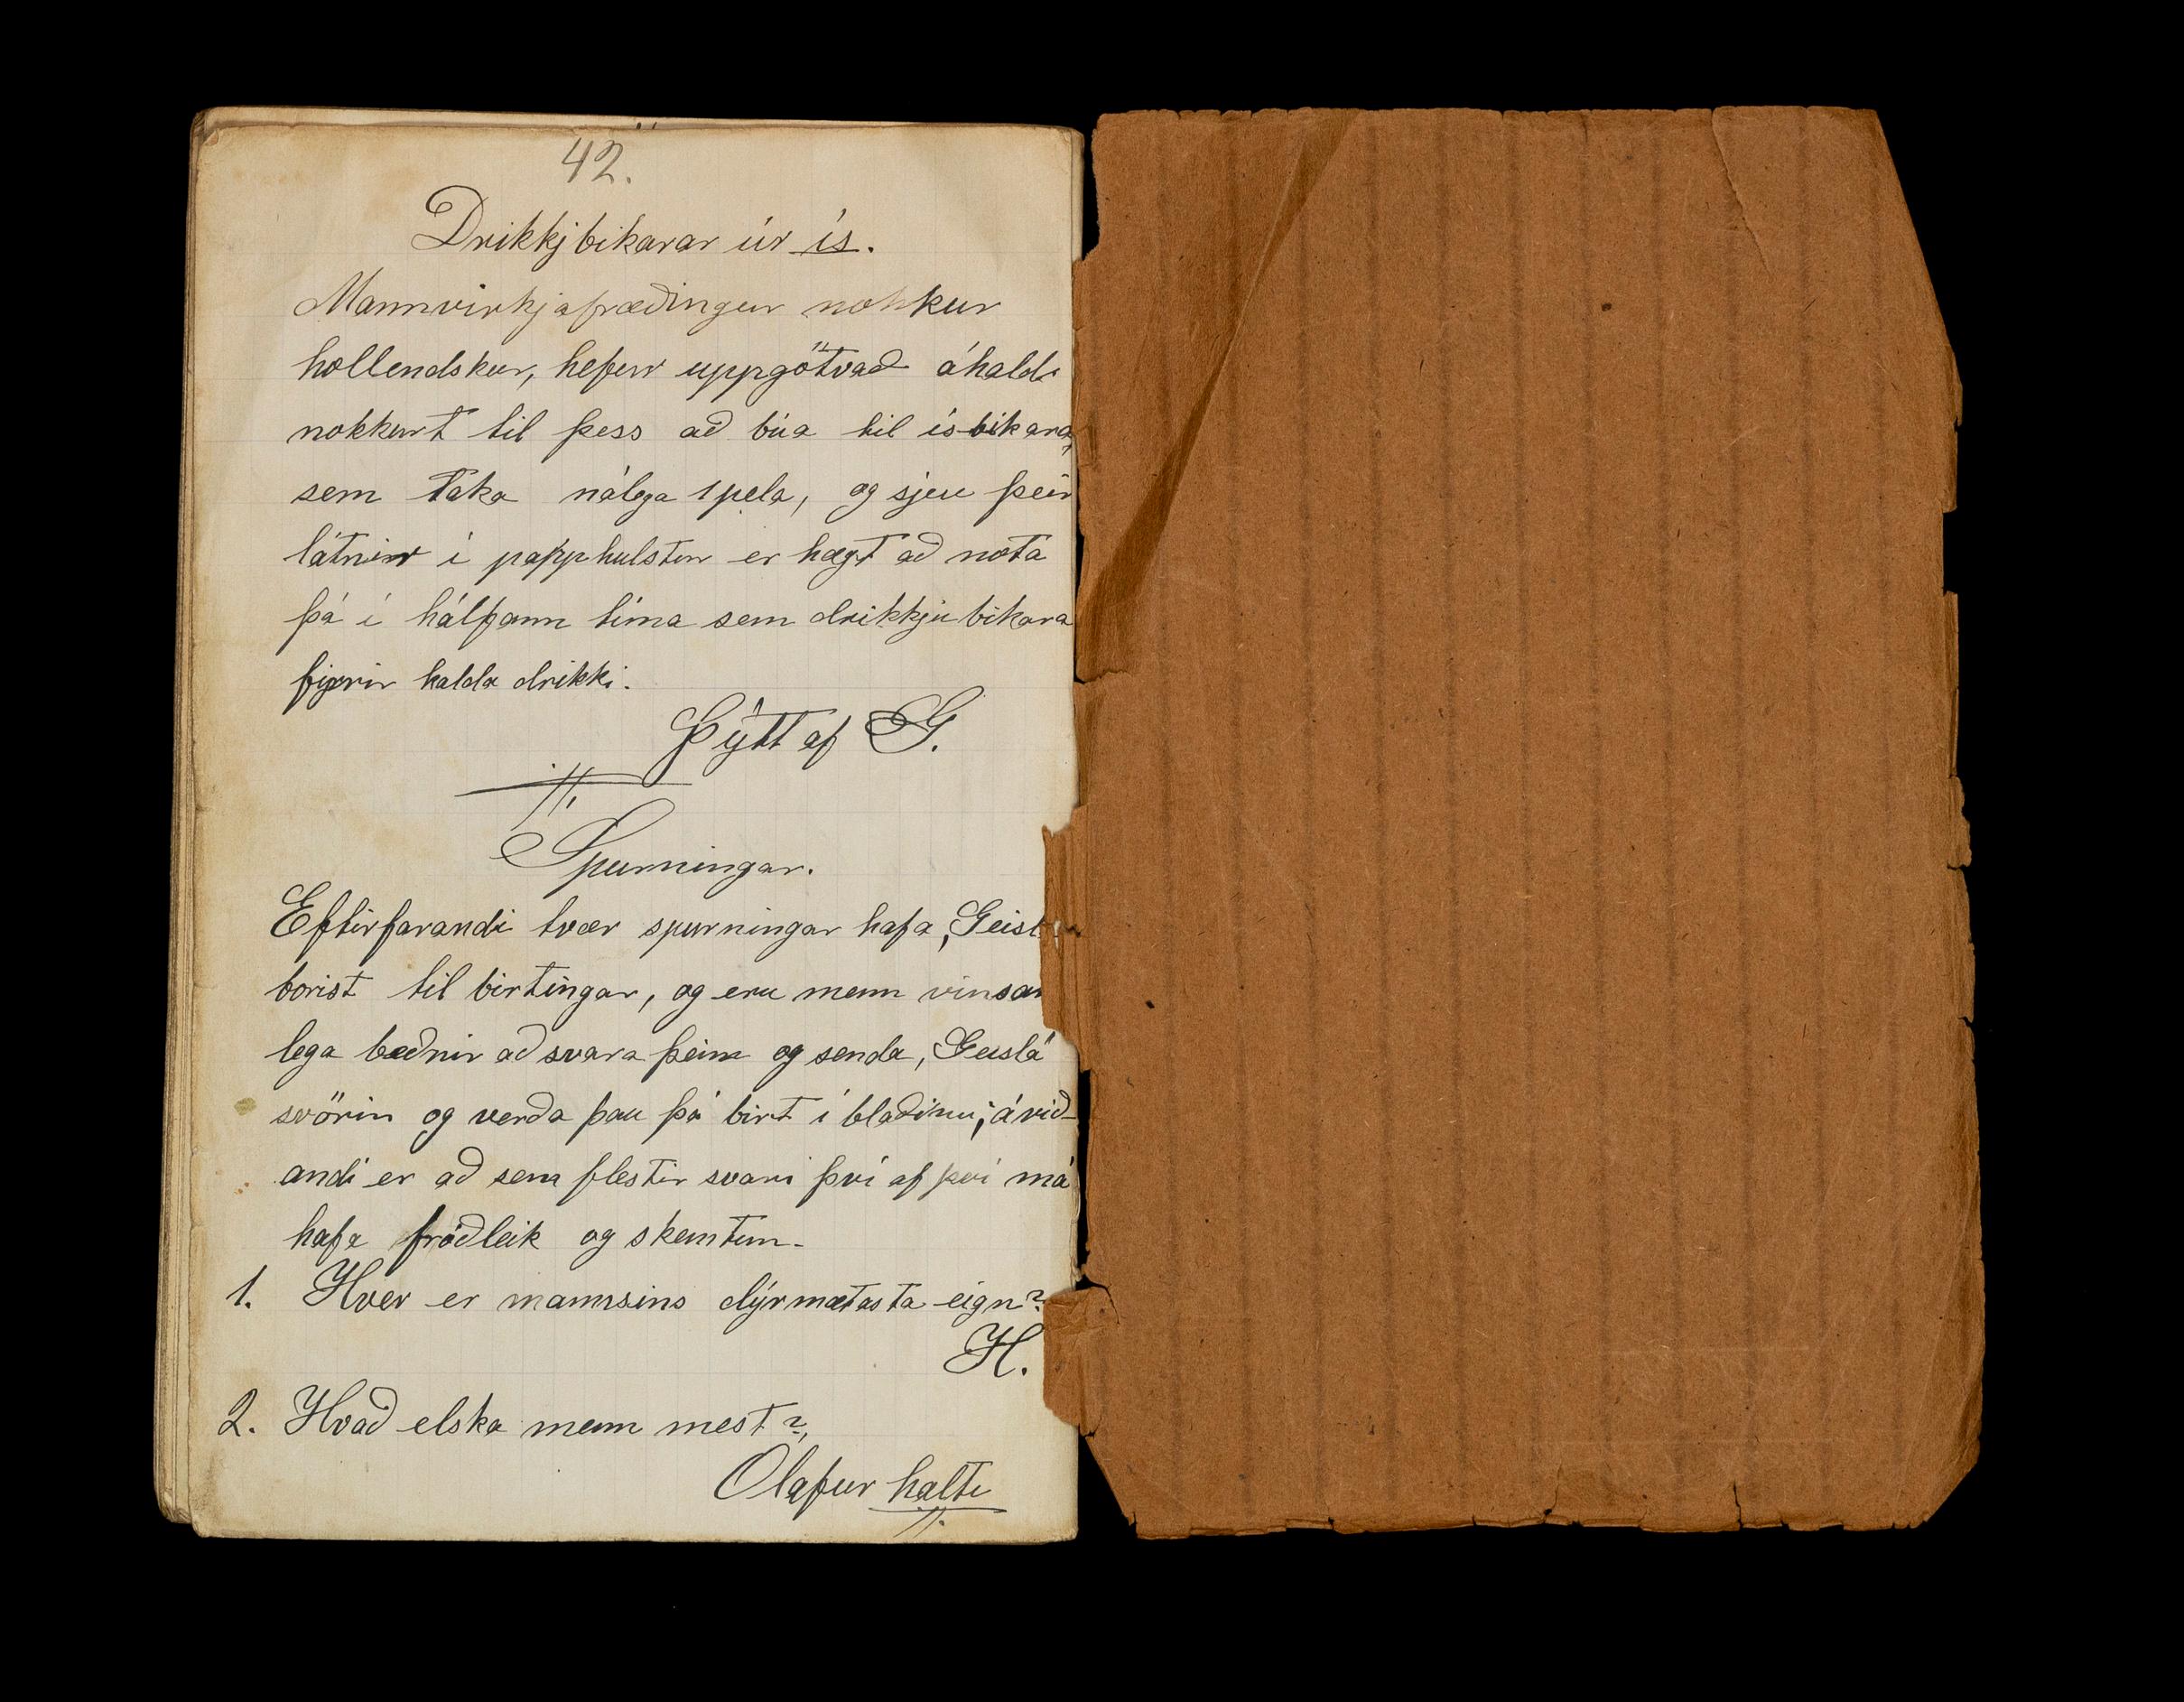 42.
Drikkjbikarar úr ís.
Mannvirkjafræðingur nokkur
hollendskur, hefur uppgötvað áhaldi
nokkurt til þess að búa til ís-bikara,
sem taka nálega 1 pela, og sjeu þeir
látnir í papphulstur er hægt að nota
þá í hálfann tíma sem drikkju bikara
fyrir kalda drikki.
Þýtt af G.
Spurningar.
Eftirfarandi tvær spurningar hafa „Geisl
borist til birtingar, og eru menn vinsam
lega beðnir að svara þeim og senda „Geisla"
svörin og verða þau þá birt í blaðinu; áríð-
andi er að sem flestir svari því af því má
hafa fróðleik og skemtun.
1. Hver er mannsins dýrmætasta eign?
H.
2. Hvað elska menn mest?
Ólafur halti